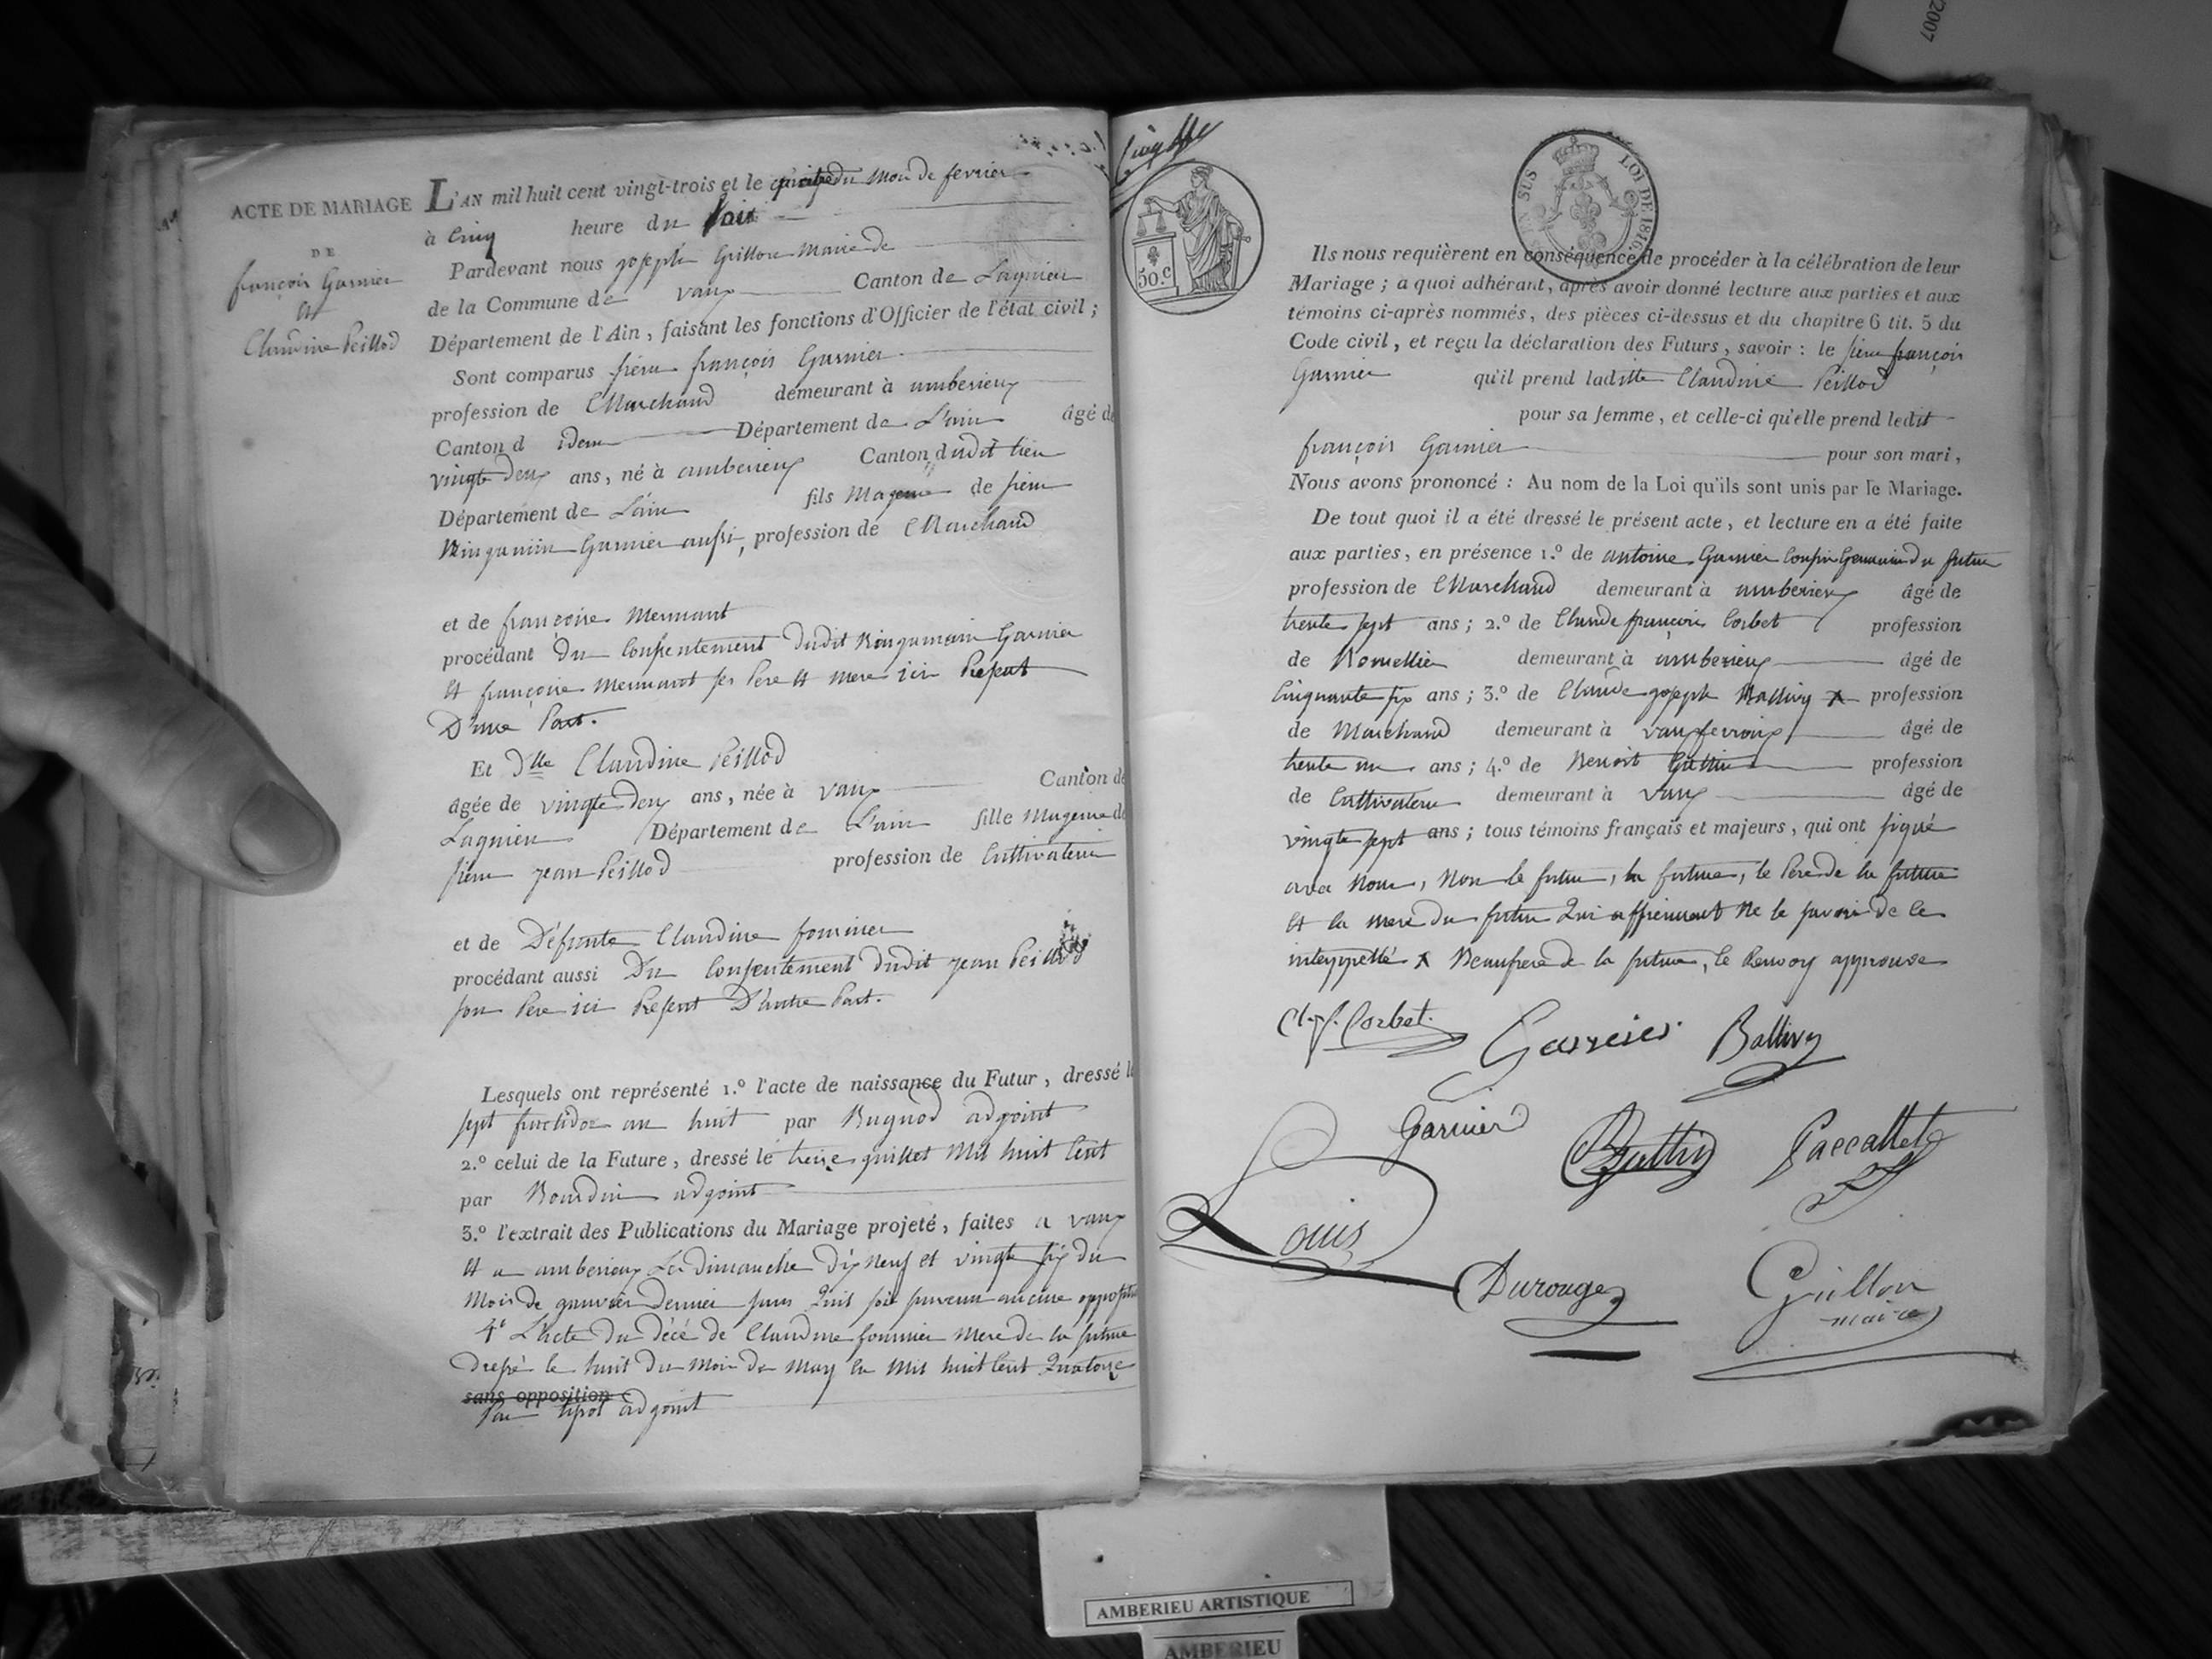 /2007
ACTE DE MARIAGE
DE
françois Garnier
et
Claudine Peillod
L'AN mil huit cent vingt-trois et le du mois de fevrier
à Cinq heure du soir
Pardevant nous joseph Grillon Maire de
de la Commune de vaux Canton de Lagnieu
Département de l'Ain, faisant les fonctions d'Officier de l'état civil ;
Sont comparus sieur françois Garnier
profession de Marchand demeurant à amberieux
Canton d idem Département de L'ain âgé de
vingt deux ans, né à amberieux Canton dudit lieu
Département de L'ain fils Mageur de sieur
Garnier aussi, profession de Marchand
et de françoise Mermant
procédant du Consentement dudit Garnier
et françoise Mermant ses Pere et mere ici Présent
D'une Part.
Et Dlle Claudine Peillod
âgée de vingt deux ans, née à vaux Canton de
Lagnieu Département de L'ain fille Mageure de
sieur jean Peillod profession de Cultivateur
et de Défunte Claudine fournier
procédant aussi Du Consentement dudit jean Peillod
son Pere ici Présent D'autre Part.
Lesquels ont représenté 1.° l'acte de naissance du Futur, dressé le
sept fructidor an huit par Bugnod adjoint
2.° celui de la Future, dressé le treize juillet Mil huit Cent
par Bourdin adjoint
3.° l'extrait des Publications du Mariage projeté, faites a vaux
et a amberieux Les dimanche dix neuf et vingt six du
Mois de janvier dernier sans Quil soit survenu aucune opposition
4° L'acte du décé de Claudine fournier mere de la future
dressé le huit du Mois de May en Mil huit Cent Quatorze
sans opposition
Par adjoint
50.c
LOI DE 1816.
Ils nous requièrent en conséquence de procéder à la célébration de leur
Mariage ; a quoi adhérant, après avoir donné lecture aux parties et aux
témoins ci-après nommés, des pièces ci-dessus et du chapitre 6 tit. 5 du
Code civil, et reçu la déclaration des Futurs, savoir : le sieur françois
Garnier qu'il prend laditte Claudine Peillod
pour sa femme, et celle-ci qu'elle prend ledit
françois Garnier pour son mari,
Nous avons prononcé : Au nom de la Loi qu'ils sont unis par le Mariage.
De tout quoi il a été dressé le présent acte, et lecture en a été faite
aux parties, en présence 1.° de antoine Garnier Cousin Germain du futur
profession de Marchand demeurant à amberieux âgé de
trente sept ans ; 2.° de Claude françois Corbet profession
de demeurant à amberieux âgé de
Cinquante six ans ; 3.° de Claude joseph Ballivy x profession
de Marchand demeurant à vaux fevroux âgé de
trente un ans ; 4.° de Benoit Guttin profession
de Cultivateur demeurant à vaux âgé de
vingt sept ans ; tous témoins français et majeurs, qui ont signé
avec Nous, Non le futur, la future, le Pere de la future
et la mere du futur Qui affirment Ne le savoir de ce
interppellé x Beaufrere de la future, le Renvoy approuve
Cl. f. Corbet.
Garnier
Ballivy
Garnier
Guttin
Paccallet
Louis
Durouge
Grillon
maire
AMBERIEU ARTISTIQUE
AMBERIEU